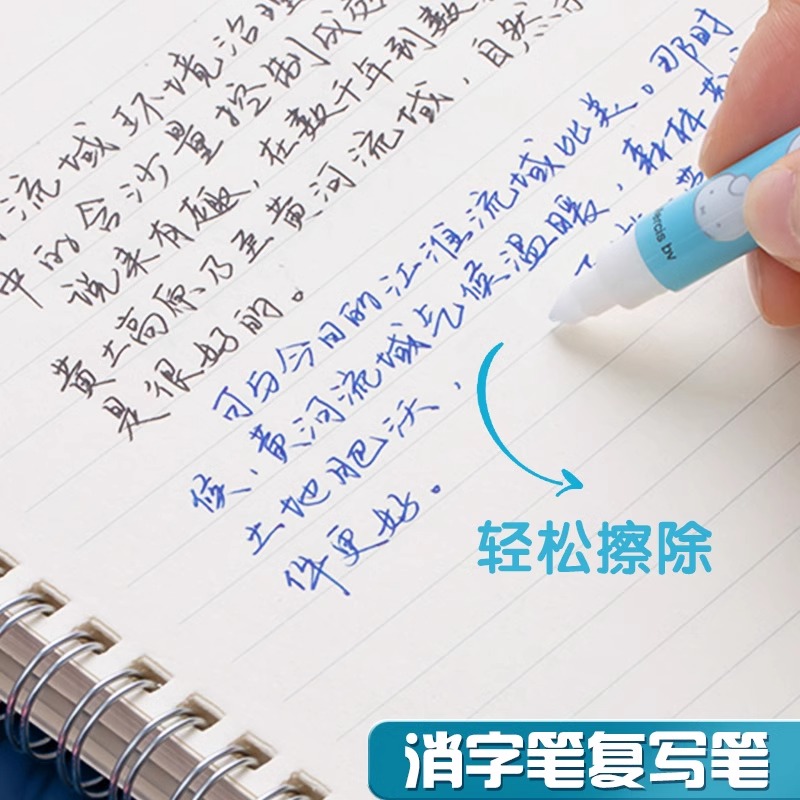 流域环境治理
中的含沙量控制成效
说来有趣，在数千年到数
黄土高原乃至黄河流域，自然
是很好的。
可与今日的江淮流域比美。那时
候，黄河流域气候温暖，森林茂
土地肥沃，
件更好。
Mercis bv
轻松擦除
消字笔复写笔